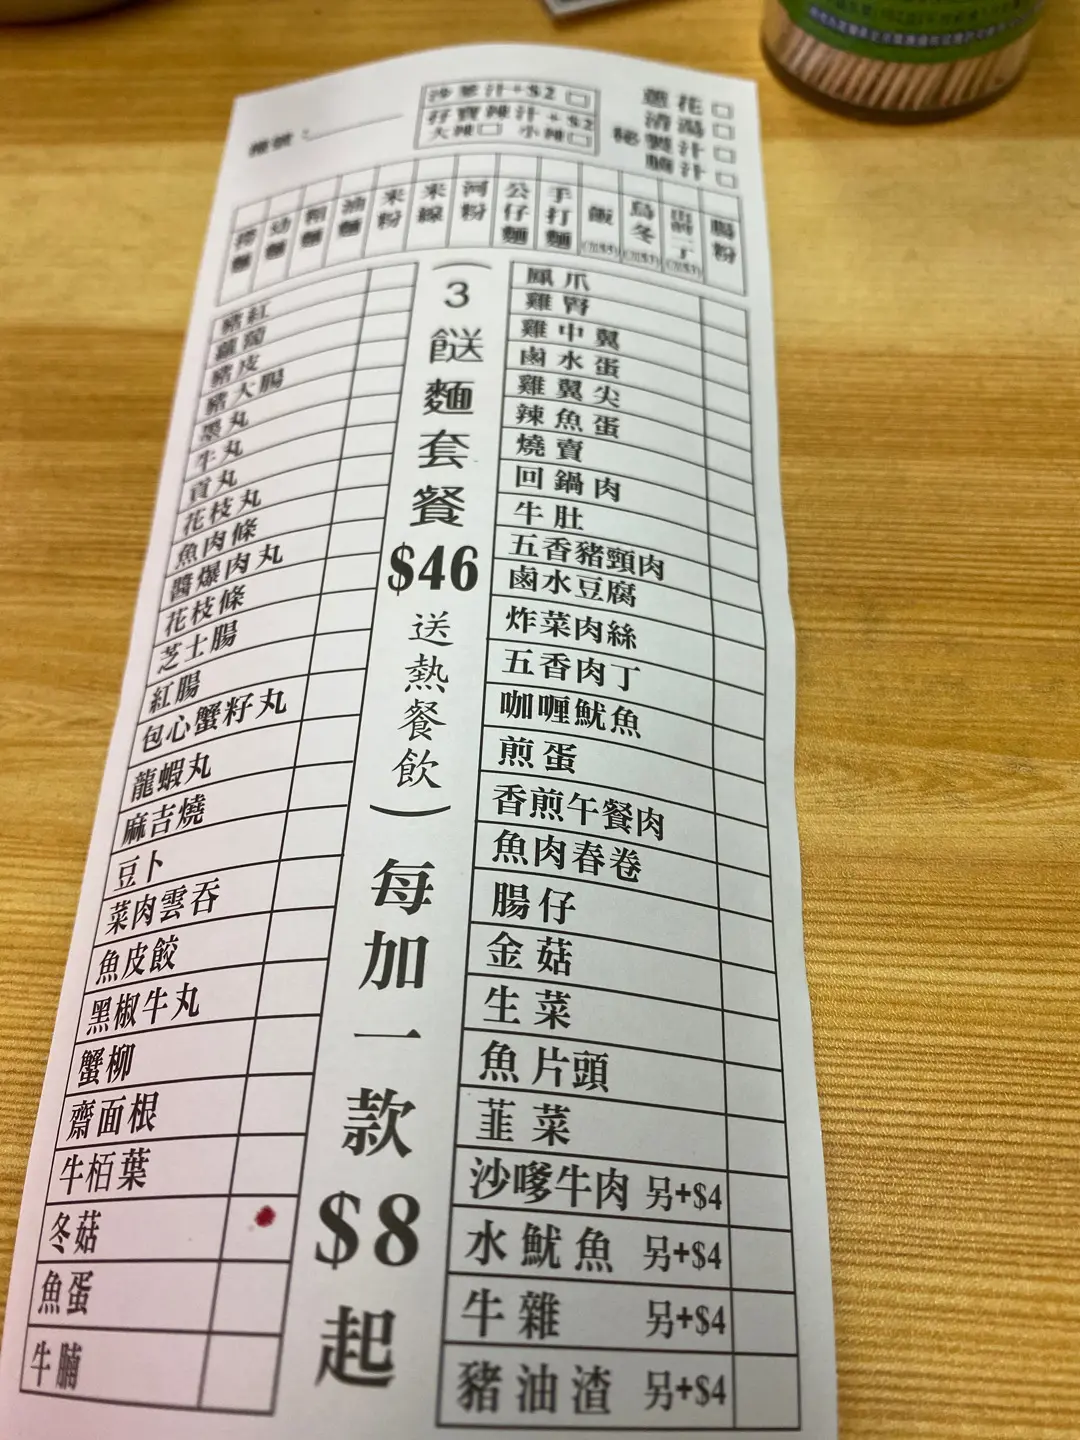 沙爹汁+$2
仔寶辣汁+$2
大辣 小辣
蔥花
清湯
秘製汁
鹵汁
檯號：
撈麵
幼麵
粗麵
油麵
米粉
米線
河粉
公仔麵
手打麵
飯
烏冬
出前一丁
腸粉
豬紅
蘿蔔
豬皮
豬大腸
墨丸
牛丸
貢丸
花枝丸
魚肉條
醬爆肉丸
花枝條
芝士腸
紅腸
包心蟹籽丸
龍蝦丸
麻吉燒
豆卜
菜肉雲吞
魚皮餃
黑椒牛丸
蟹柳
齋面根
牛栢葉
冬菇
魚蛋
牛腩
(3餸麵套餐$46送熱餐飲)每加一款$8起
鳳爪
雞腎
雞中翼
鹵水蛋
雞翼尖
辣魚蛋
燒賣
回鍋肉
牛肚
五香豬頸肉
鹵水豆腐
炸菜肉絲
五香肉丁
咖喱魷魚
煎蛋
香煎午餐肉
魚肉春卷
腸仔
金菇
生菜
魚片頭
韮菜
沙嗲牛肉 另+$4
水魷魚 另+$4
牛雜 另+$4
豬油渣 另+$4